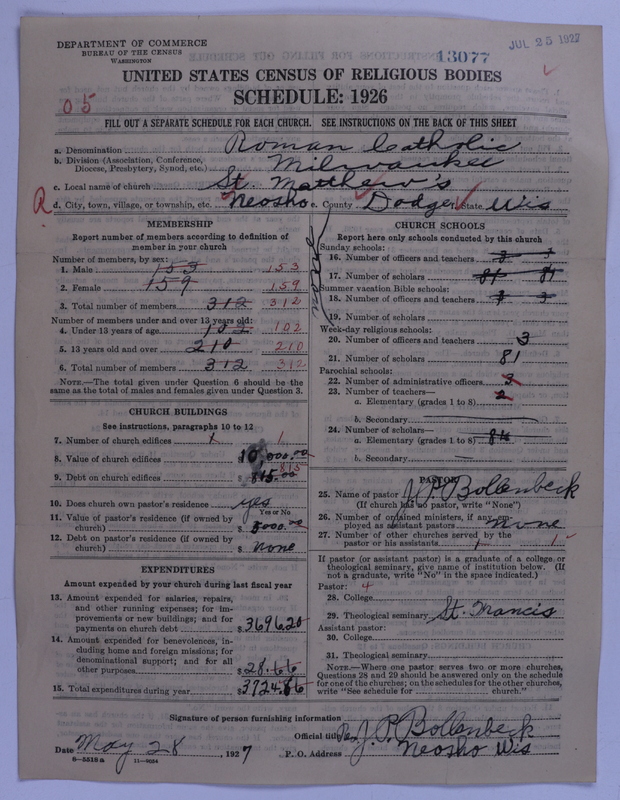 DEPARTMENT OF COMMERCE
BUREAU OF THE CENSUS
WASHINGTON
13077
JUL 25 1927
UNITED STATES CENSUS OF RELIGIOUS BODIES
SCHEDULE: 1926
05
FILL OUT A SEPARATE SCHEDULE FOR EACH CHURCH. SEE INSTRUCTIONS ON THE BACK OF THIS SHEET
a. Denomination Roman Catholic
b. Division (Association, Conference, Diocese, Presbytery, Synod, etc.) Milwaukee
c. Local name of church St. Matthew's
R d. City, town, village, or township, etc. Neosho e. County Dodge f. State Wis
MEMBERSHIP
Report number of members according to definition of member in your church
Number of members, by sex:
1. Male 153 153
2. Female 159 159
3. Total number of members 312 312
Number of members under and over 13 years old:
4. Under 13 years of age 102 102
5. 13 years old and over 210 210
6. Total number of members 312 312
NOTE.—The total given under Question 6 should be the same as the total of males and females given under Question 3.
CHURCH BUILDINGS
See instructions, paragraphs 10 to 12
7. Number of church edifices 1 1
8. Value of church edifices $10,000.00
9. Debt on church edifices $815.00 815
10. Does church own pastor's residence yes
Yes or No
11. Value of pastor's residence (if owned by church) $5000.00
12. Debt on pastor's residence (if owned by church) $ None
EXPENDITURES
Amount expended by your church during last fiscal year
13. Amount expended for salaries, repairs, and other running expenses; for improvements or new buildings; and for payments on church debt $3696.20
14. Amount expended for benevolences, including home and foreign missions; for denominational support; and for all other purposes $28.66
15. Total expenditures during year $3724.86
CHURCH SCHOOLS
Report here only schools conducted by this church
Sunday schools:
16. Number of officers and teachers 3 3
17. Number of scholars 81 81
Summer vacation Bible schools:
18. Number of officers and teachers 3 3
19. Number of scholars
none
Week-day religious schools:
20. Number of officers and teachers 3
21. Number of scholars 81
Parochial schools:
22. Number of administrative officers 3
23. Number of teachers—
a. Elementary (grades 1 to 8) 2
b. Secondary
24. Number of scholars—
a. Elementary (grades 1 to 8)
b. Secondary
PASTOR
25. Name of pastor J. P. Bollenbeck
(If church has no pastor, write "None")
26. Number of ordained ministers, if any, employed as assistant pastors None
27. Number of other churches served by the pastor or his assistants 1 1
If pastor (or assistant pastor) is a graduate of a college or theological seminary, give name of institution below. (If not a graduate, write "No" in the space indicated.)
Pastor: 4
28. College
29. Theological seminary St. Francis
Assistant pastor:
30. College
31. Theological seminary
NOTE.—Where one pastor serves two or more churches, Questions 28 and 29 should be answered only on the schedule for one of the churches; on the schedules for the other churches, write "See schedule for church."
Signature of person furnishing information
Official title Rev J. P. Bollenbeck
Date May 28, 1927 P. O. Address Neosho Wis
8—5518 a 11—9024